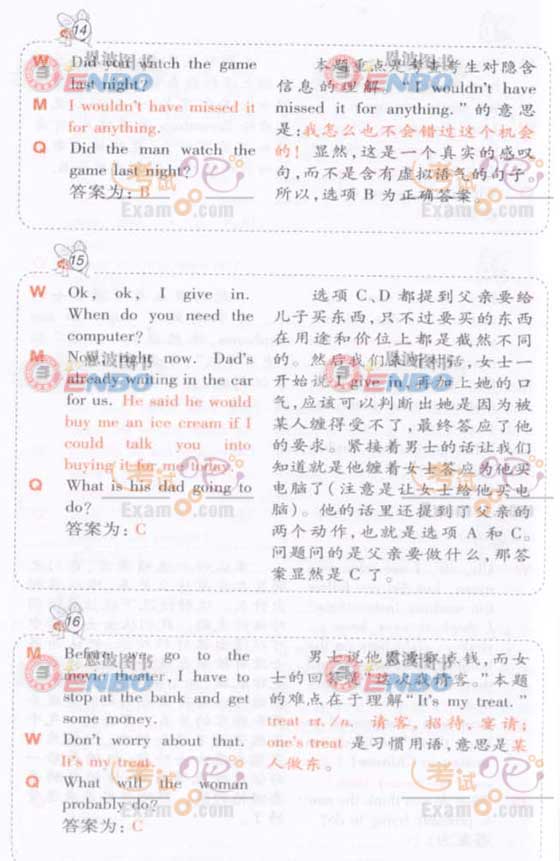 14
W Did you watch the game
last night?
M I wouldn't have missed it
for anything.
Q Did the man watch the
game last night?
答案为：B
本题重点是考查考生对隐含
信息的理解。"I wouldn't have
missed it for anything."的意思
是：我怎么也不会错过这个机会
的！显然，这是一个真实的感叹
句，而不是含有虚拟语气的句子。
所以，选项 B 为正确答案。
15
W Ok, ok, I give in.
When do you need the
computer?
M Now, right now. Dad's
already waiting in the car
for us. He said he would
buy me an ice cream if I
could talk you into
buying it for me today.
Q What is his dad going to
do?
答案为：C
选项 C、D 都提到父亲要给
儿子买东西，只不过要买的东西
在用途和价位上都是截然不同
的。然后我们 话，女士一
开始说 I give in，再加上她的口
气，应该可以判断出她是因为被
某人缠得受不了，最终答应了他
的要求。紧接着男士的话让我们
知道就是他缠着女士答应为他买
电脑了（注意是让女士给他买电
脑）。他的话里还提到了父亲的
两个动作，也就是选项 A 和 C。
问题问的是父亲要做什么，那答
案显然是 C 了。
16
M Before we go to the
movie theater, I have to
stop at the bank and get
some money.
W Don't worry about that.
It's my treat.
Q What will the woman
probably do?
答案为：C
男士说他 取点钱，而女
士的回答是"这次我请客。"本题
的难点在于理解"It's my treat."
treat vt./n. 请客，招待，宴请；
one's treat 是习惯用语，意思是某
人做东。
恩波图书
ENBO
考试
Exam8.com